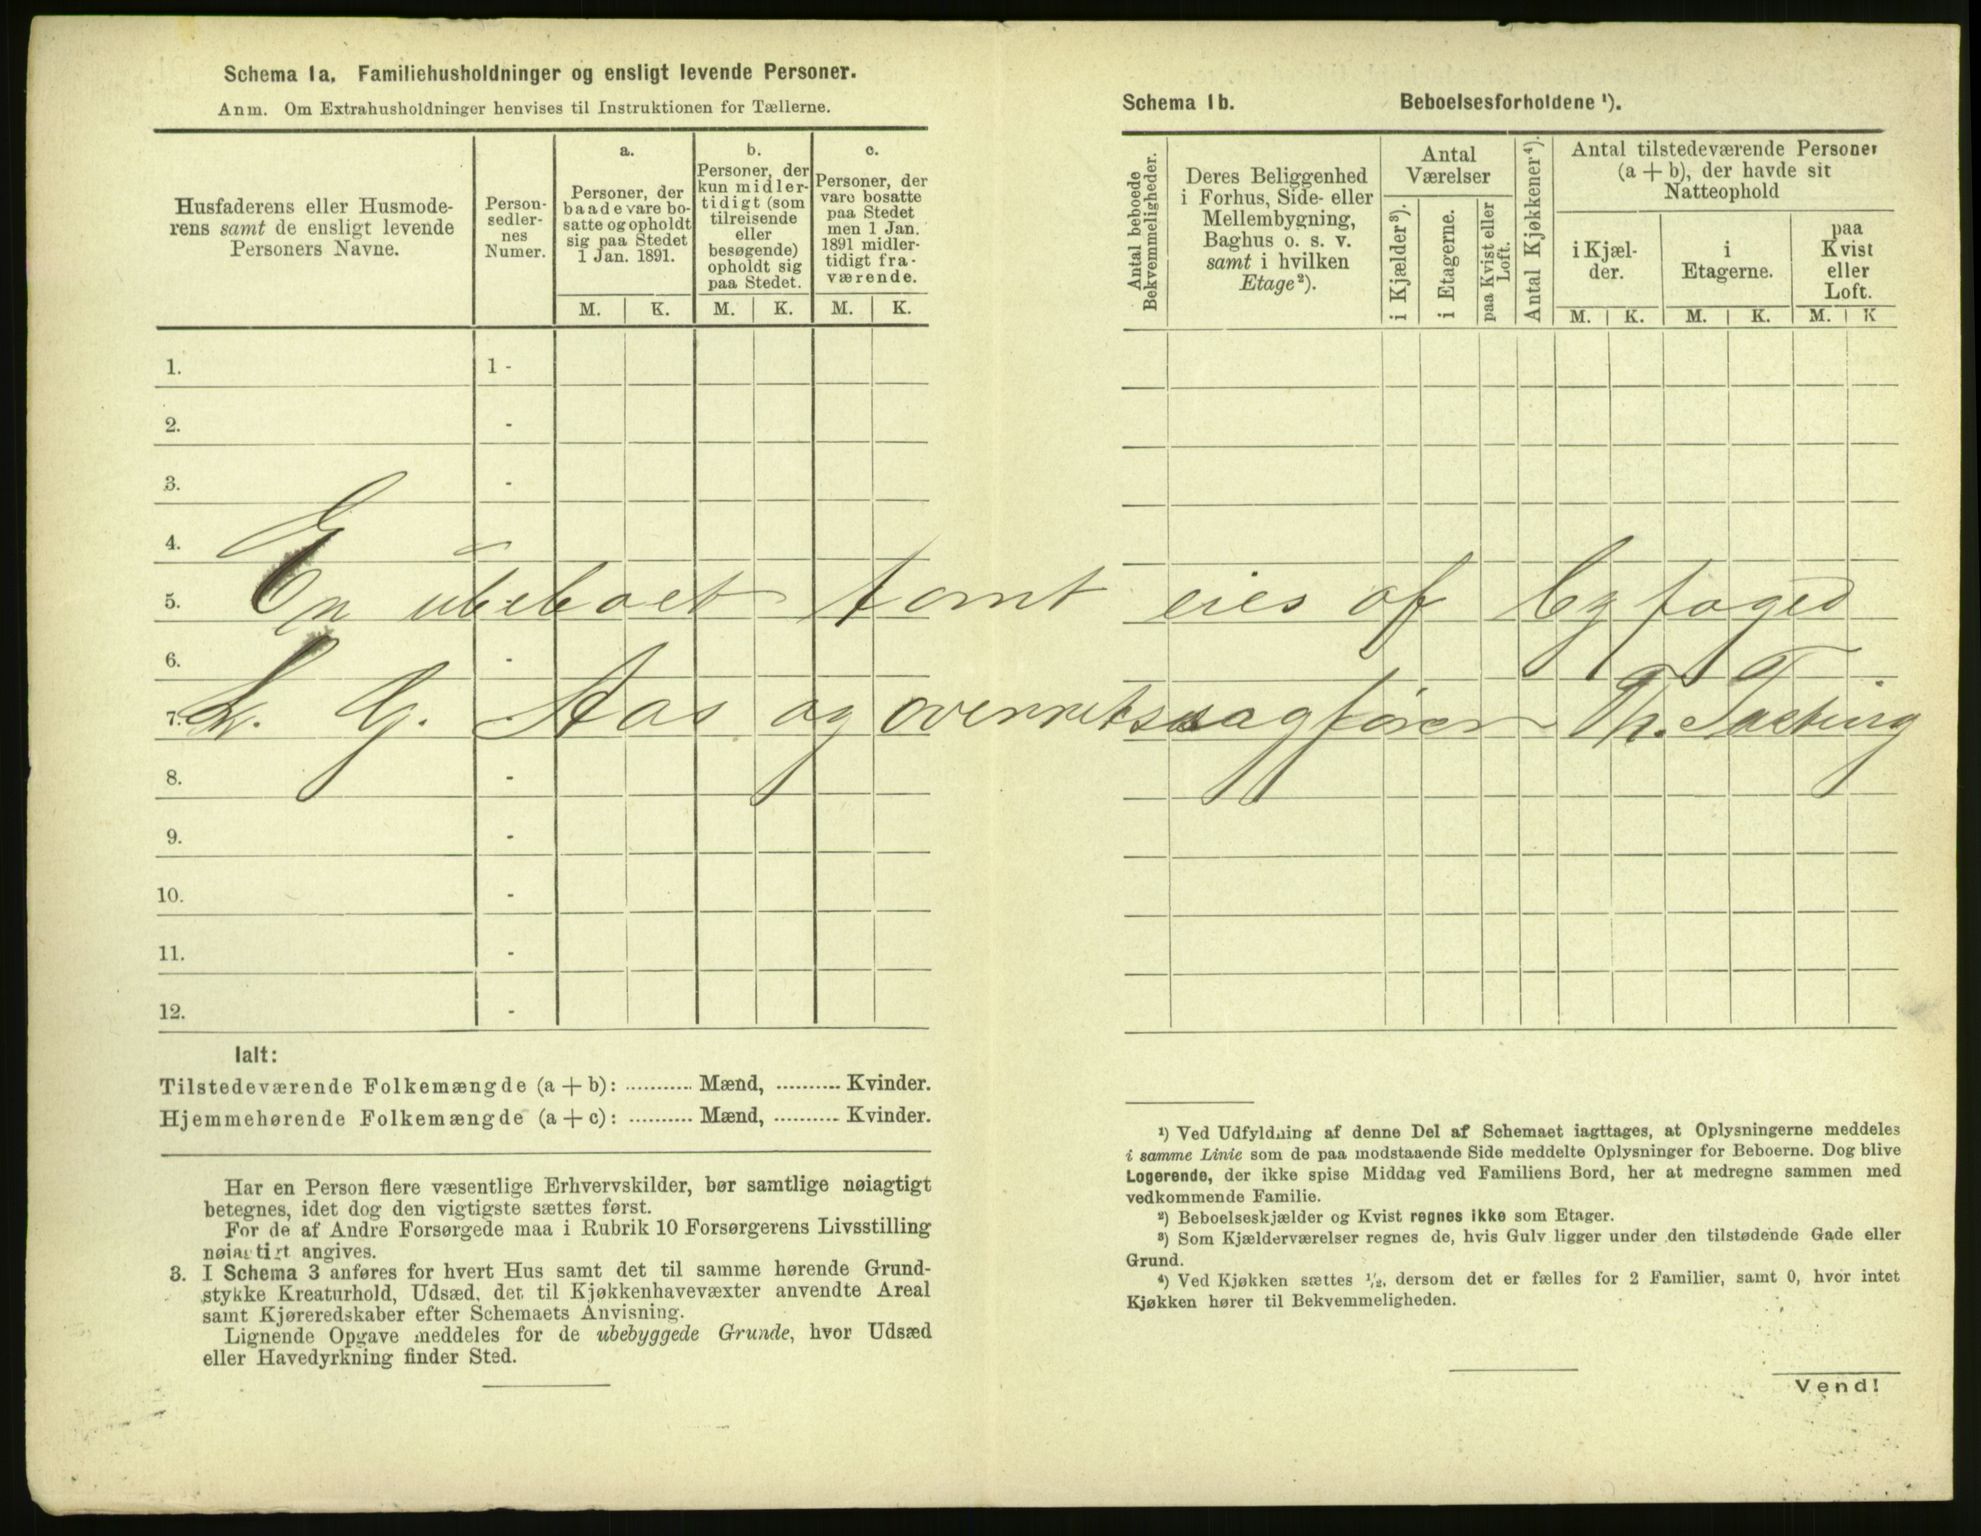 Schema 1a. Familiehusholdninger og ensligt levende Personer.
Anm. Om Extrahusholdninger henvises til Instruktionen for Tællerne.
Husfaderens eller Husmode-
rens samt de ensligt levende
Personers Navne.
Person-
sedler-
nes
Numer.
a.
Personer, der
baade vare bo-
satte og opholdt
sig paa Stedet
1 Jan. 1891.
b.
Personer, der
kun midler-
tidigt (som
tilreisende
eller
besøgende)
opholdt sig
paa Stedet.
c.
Personer, der
vare bosatte
paa Stedet
men 1 Jan.
1891 midler-
tidigt fra-
værende.
M. K. M. K. M. K.
1. 1 -
2. -
3. -
4.
5.
6. -
7.
8. -
9. -
10. -
11. -
12. -
En ubeboet tomt eies af byfoged
L. G. Aas og overretssagfører Th.
Ialt:
Tilstedeværende Folkemængde (a + b): ........... Mænd, ........... Kvinder.
Hjemmehørende Folkemængde (a + c): ........... Mænd, ........... Kvinder.
Har en Person flere væsentlige Erhvervskilder, bør samtlige nøiagtigt
betegnes, idet dog den vigtigste sættes først.
For de af Andre Forsørgede maa i Rubrik 10 Forsørgerens Livsstilling
nøiagtigt angives.
3. I Schema 3 anføres for hvert Hus samt det til samme hørende Grund-
stykke Kreaturhold, Udsæd, det til Kjøkkenhavevæxter anvendte Areal
samt Kjøreredskaber efter Schemaets Anvisning.
Lignende Opgave meddeles for de ubebyggede Grunde, hvor Udsæd
eller Havedyrkning finder Sted.
Schema 1b. Beboelsesforholdene ¹).
Antal beboede
Bekvemmeligheder.
Deres Beliggenhed
i Forhus, Side- eller
Mellembygning,
Baghus o. s. v.
samt i hvilken
Etage ²).
Antal
Værelser
i Kjælder ³).
i Etagerne.
paa Kvist eller
Loft.
Antal Kjøkkener ⁴).
Antal tilstedeværende Personer
(a + b), der havde sit
Natteophold
i Kjæl-
der.
i
Etagerne.
paa
Kvist
eller
Loft.
M. K. M. K. M. K
¹) Ved Udfyldning af denne Del af Schemaet iagttages, at Oplysningerne meddeles
i samme Linie som de paa modstaaende Side meddelte Oplysninger for Beboerne. Dog blive
Logerende, der ikke spise Middag ved Familiens Bord, her at medregne sammen med
vedkommende Familie.
²) Beboelseskjælder og Kvist regnes ikke som Etager.
³) Som Kjælderværelser regnes de, hvis Gulv ligger under den tilstødende Gade eller
Grund.
⁴) Ved Kjøkken sættes ½, dersom det er fælles for 2 Familier, samt 0, hvor intet
Kjøkken hører til Bekvemmeligheden.
Vend!